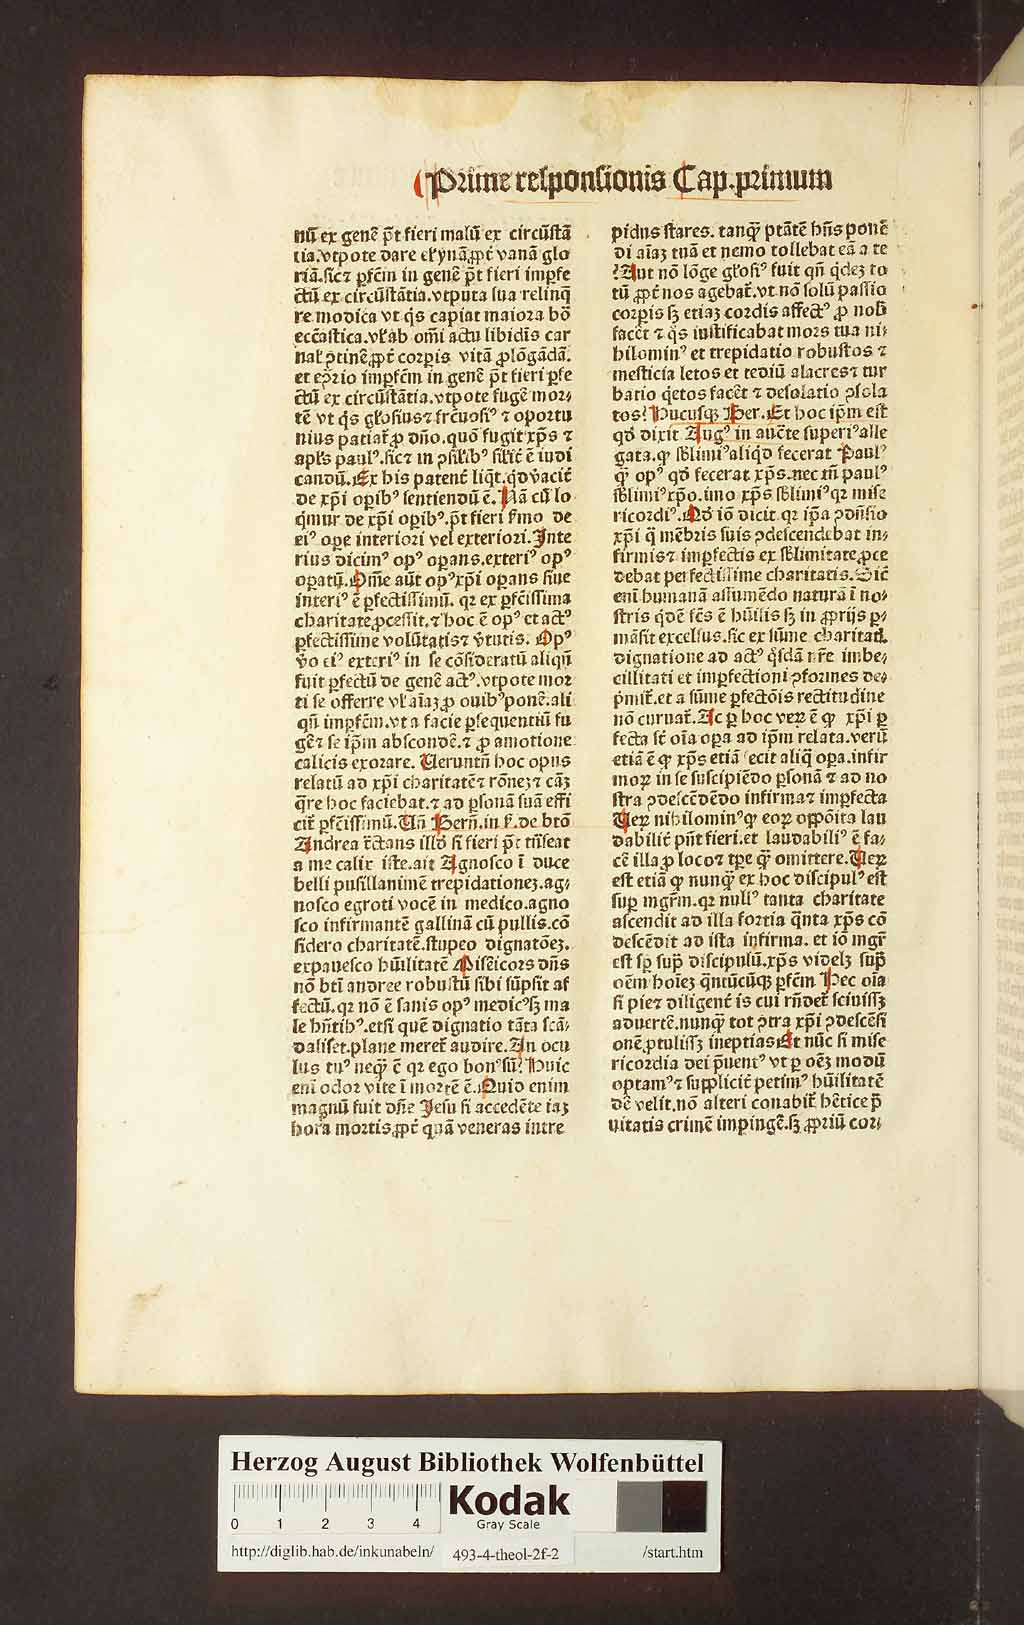 Prime responsionis Cap.primum
nū ex genē p̄t fieri malū ex circūstā
tia.vtpote dare elꝛynā ꝓpt̄ vanā glo
riā.sicꝛ ꝑfcm̄ in genē p̄t fieri impfe
ctū ex circūstātia.vtputa sua relinq̄
re modica vt q̇s capiat maiora bō
ecc̄astica.vl̓ ab om̄i actu libidīs car
nal̓ ꝑtinē ꝓpt̄ corꝑis vitā ꝓlōgādā.
et ep̄rio imꝑfcm̄ in genē p̄t fieri ꝑfe
ctū ex circūstātia.vtpote fugē mor⸗
tē vt q̇s gl̓osiusꝛ fr̄cuosiꝰ ꝛ oportu
nius patiat̄ ꝓ dn̄o.quō fugit xp̄s ꝛ
apl̓s paulꝰ.sicꝛ in ꝯsil̓ibꝰ sil̓it̄ ē iudi
candū.Ex his patent̄ liq̄t.qd̓ v̓acit̄
de xp̄i oꝑibꝰ sentiendū ē.Nā cū lo
q̄mur de xp̄i oꝑibꝰ.p̄t fieri s̓mo de
eiꝰ oꝑe interiori vel exteriori.Inte
rius dicimꝰ opꝰ oꝑans.exteriꝰ opꝰ
oꝑatū.Om̄e aūt opꝰxp̄i oꝑans siue
interiꝰ ē ꝑfectissimū. qꝛ ex ꝑfc̄issima
charitate ꝓcessit.ꝛ hoc ē opꝰ et actꝰ
ꝑfectissime volūtatisꝛ v̓tutis. Opꝰ
v̓o eiꝰ exteriꝰ in se cōsideratū aliqn̄
fuit ꝑfectū de genē actꝰ.vtpote mor
ti se offerre vl̓ aīaꝫ ꝓ ouibꝰ ponē.ali
qn̄ imꝑfcm̄.vt a facie ꝑsequentiū fu
gēꝛ se ip̄m abscondē.ꝛ ꝓ amotione
calicis exorare. Ueruntn̄ hoc opus
relatū ad xp̄i charitatēꝛ rōneꝫꝛ cāꝫ
q̄re hoc faciebat.ꝛ ad ꝑsonā suā effi
cit̄ ꝑfc̄issimū.Un̄ Bern̄.in s̓.de btō
Andrea tc̄tans illd̓ si fieri p̄t trāseat
a me calix iste.ait Agnosco ī duce
belli pusillanimē trepidationeꝫ.ag⸗
nosco egroti vocē in medico.agno
sco infirmantē gallinā cū pullis.cō
sidero charitatē.stupeo dignatōeꝫ.
expauesco hūilitatē Misēicors dn̄s
nō btī andree robustū sibi sūpsit af
fectū.qꝛ nō ē sanis opꝰ medicꝰsꝫ ma
le hn̄tibꝰ.etsi quē dignatio tāta scā⸗
daliset.plane meret̄ audire.An ocu
lus tuꝰ neq̄ ē qꝛ ego bonꝰsū? Huic
eni odor vite ī mortē ē.Quid enim
magnū fuit dn̄e Jesu si accedēte iaꝫ
hora mortis ꝓpt̄ quā veneras intre
pidus stares. tanq̄ ptātē hn̄s ponē
di aīaꝫ tuā et nemo tollebat eā a te
?Aut nō lōge gl̓osiꝰ fuit qn̄ q̇deꝫ to
tū ꝓpt̄ nos agebat̄.vt nō solū passio
corꝑis sꝫ etiaꝫ cordis affectꝰ ꝓ nob̓
facēt ꝛ q̇s iustificabat mors tua ni⸗
hilominꝰ et trepidatio robustos ꝛ
mesticia letos et tediū alacresꝛ tur
batio q̇etos facēt ꝛ desolatio ꝯsola
tos! Hucusqꝫ Ber.Et hoc ip̄m est
qd̓ dixit Augꝰ in auc̄te superiꝰalle
gata.ꝙ sb̓limiꝰaliqd̓ fecerat Paulꝰ
q̄ opꝰ qd̓ fecerat xp̄s.nec tn̄ paulꝰ
sb̓limiꝰxp̄o.imo xp̄s sb̓limiꝰqꝛ mise
ricordiꝰ.Qd̓ iō dicit qꝛ ip̄a ꝯdn̄sio
xp̄i q̄ mēbris suis ꝯdescendebat in⸗
firmisꝛ imꝑfectis ex sb̓limitate ꝓce
debat perfectissime charitatis.Sic̄
eni humanā assumēdo naturā ī no⸗
stris q̇dē fc̄s ē hūilis sꝫ in ꝓprijs ꝑ⸗
māsit excelsus.sic ex sūme charitatꝭ
dignatione ad actꝰ q̇sdā nr̄e imbe⸗
cillitati et imꝑfectioni ꝯformes de⸗
p̄mit̄.et a sūme ꝑfectōis rectitudine
nō curuat̄.Ac ꝑ hoc veꝝ ē ꝙ xp̄i ꝑ
fecta st̄ oīa oꝑa ad ip̄m relata.verū
etiā ē ꝙ xp̄s etiā fecit aliq̄ oꝑa.infir
moꝝ in se suscipiēdo ꝑsonā ꝛ ad no
stra ꝯdescēdēdo infirmaꝛ imꝑfecta
Ueꝝ nihilominꝰꝙ eoꝝ oppōita lau
dabilit̄ pn̄t fieri.et laudabiliꝰ ē fa⸗
cē illa ꝓ locoꝛ tꝑe q̄ omittere.Ueꝝ
est etiā ꝙ nunq̄ ex hoc discipulꝰ est
suꝑ mgr̄m.qꝛ nulꝰ tanta charitate
ascendit ad illa fortia q̄nta xp̄s cō
descēdit ad ista infirma. et iō mgr̄
est sꝑ sup̄ discipulū.xp̄s videlꝫ sup̄
oēm hoīeꝫ q̄ntūcūqꝫ ꝑfcm̄ Hec oīa
si pieꝛ diligent̄ is cui rn̄det̄ sciuissꝫ
aduertē.nunq̄ tot ꝯtra xp̄i ꝯdescēsi
onē ꝓtulissꝫ ineptias Et nūc si mise
ricordia dei p̄uentꝰ vt ꝑ oēꝫ modū
optamꝰꝛ supplicit̄ petimꝰ hūilitatē
dē velit.nō alteri conabit̄ hētice p̄
uitatis crimē impingē.sꝫ ꝓpriū cor⸗
Herzog August Bibliothek Wolfenbüttel
0 1 2 3 4
Kodak
Gray Scale
http://diglib.hab.de/inkunabeln/ 493-4-theol-2f-2 /start.htm